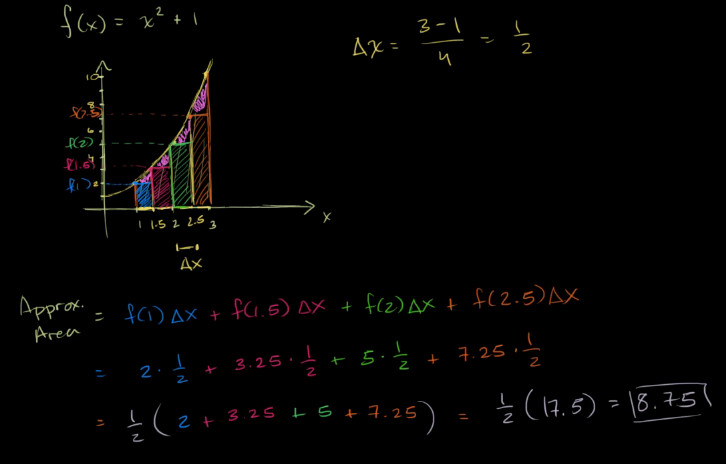 f(x) = x² + 1
Δx = (3 - 1)/4 = 1/2
10
8
f(2.5)
6
f(2)
4
f(1.5)
f(1) 2
1 1.5 2 2.5 3
x
Δx
Approx. Area = f(1)Δx + f(1.5)Δx + f(2)Δx + f(2.5)Δx
= 2 · 1/2 + 3.25 · 1/2 + 5 · 1/2 + 7.25 · 1/2
= 1/2 (2 + 3.25 + 5 + 7.25) = 1/2 (17.5) = 8.75